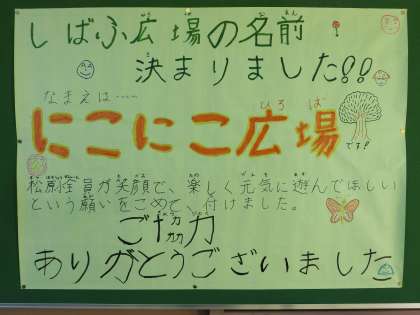 しばふ広場の名前
決まりました!!
なまえは……
にこにこ広場
です!
松原全員が笑顔で、楽しく元気に遊んでほしい
という願いをこめて、付けました。
ご協力
ありがとうございました